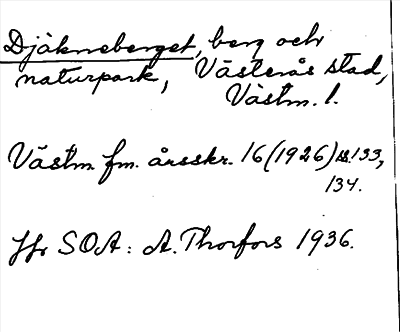 Djäkneberget, berg och
naturpark, Västerås stad,
Västm. l.
Västm. fm. årsskr. 16 (1926) s. 133,
134.
Jfr SOA: A. Thorfors 1936.